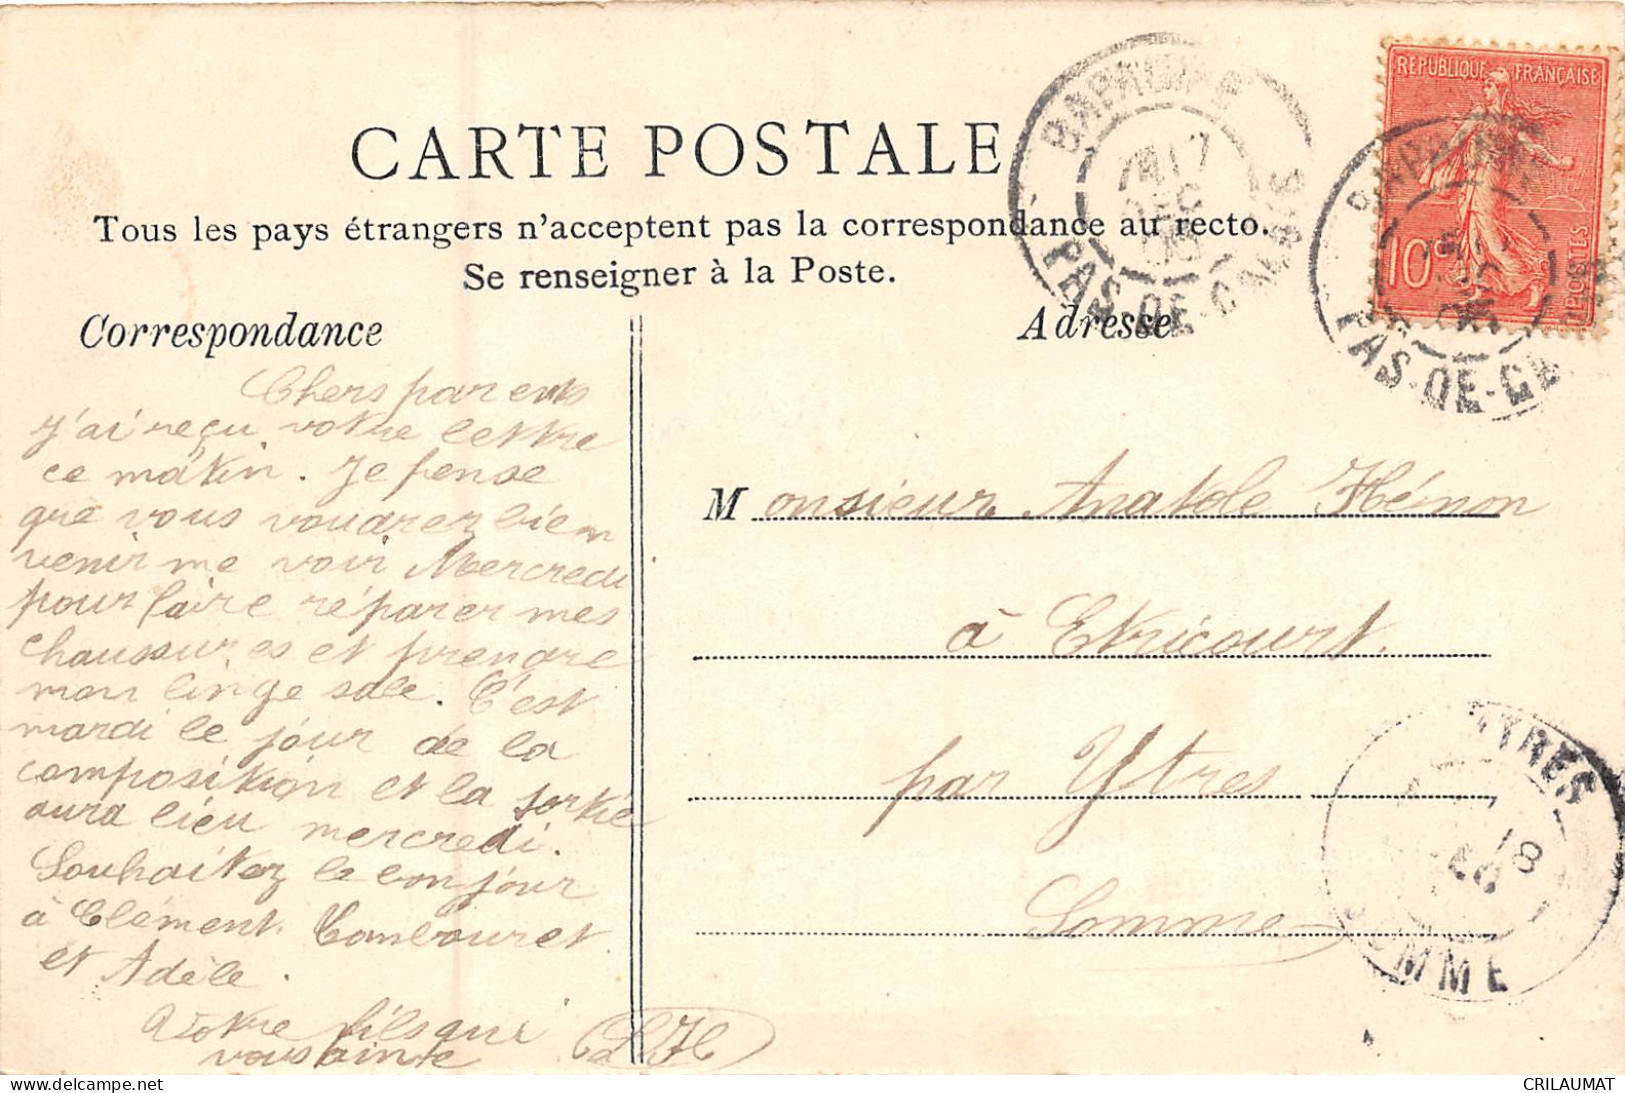 CARTE POSTALE
Tous les pays étrangers n'acceptent pas la correspondance au recto.
Se renseigner à la Poste.
Correspondance
Adresse
REPUBLIQUE FRANÇAISE
10c
POSTES
BAPAUME
PAS-DE-CALAIS
BAPAUME
PAS-DE-CA
Chers parents
j'ai reçu votre lettre
ce matin. Je pense
que vous voudrez bien
venir me voir Mercredi
pour faire réparer mes
chaussures et prendre
mon linge sale. C'est
mardi le jour de la
composition et la sortie
aura lieu mercredi.
Souhaitez le bonjour
à Clément
et Adèle.
Votre fils qui
vous aime
LH
Monsieur Anatole Hénon
à Etricourt.
par Ytres
Somme
YTRES
18
SOMME
https://www.delcampe.net
CRILAUMAT